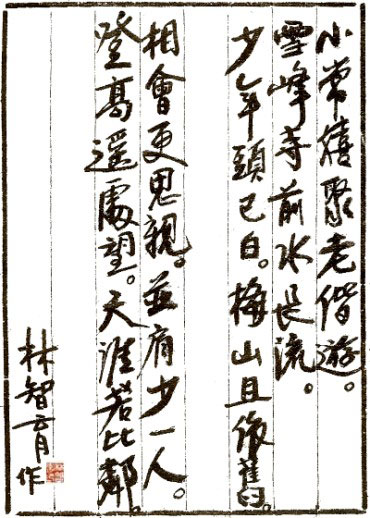 小常禧聚老偕遊。
雪峰寺前水長流。
少年頭已白。梅山且復舊。
相會更思親。並肩少一人。
登高遥處望。天涯若比鄰。
林智育作